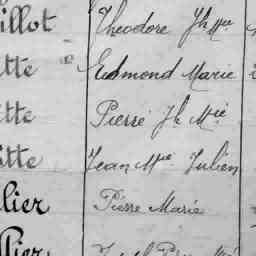 illot Theodore Jh Mie
tte Edmond Marie
tte Pierre Jh Mie
itte Jean Mie Julien
lier Pierre Marie
llier